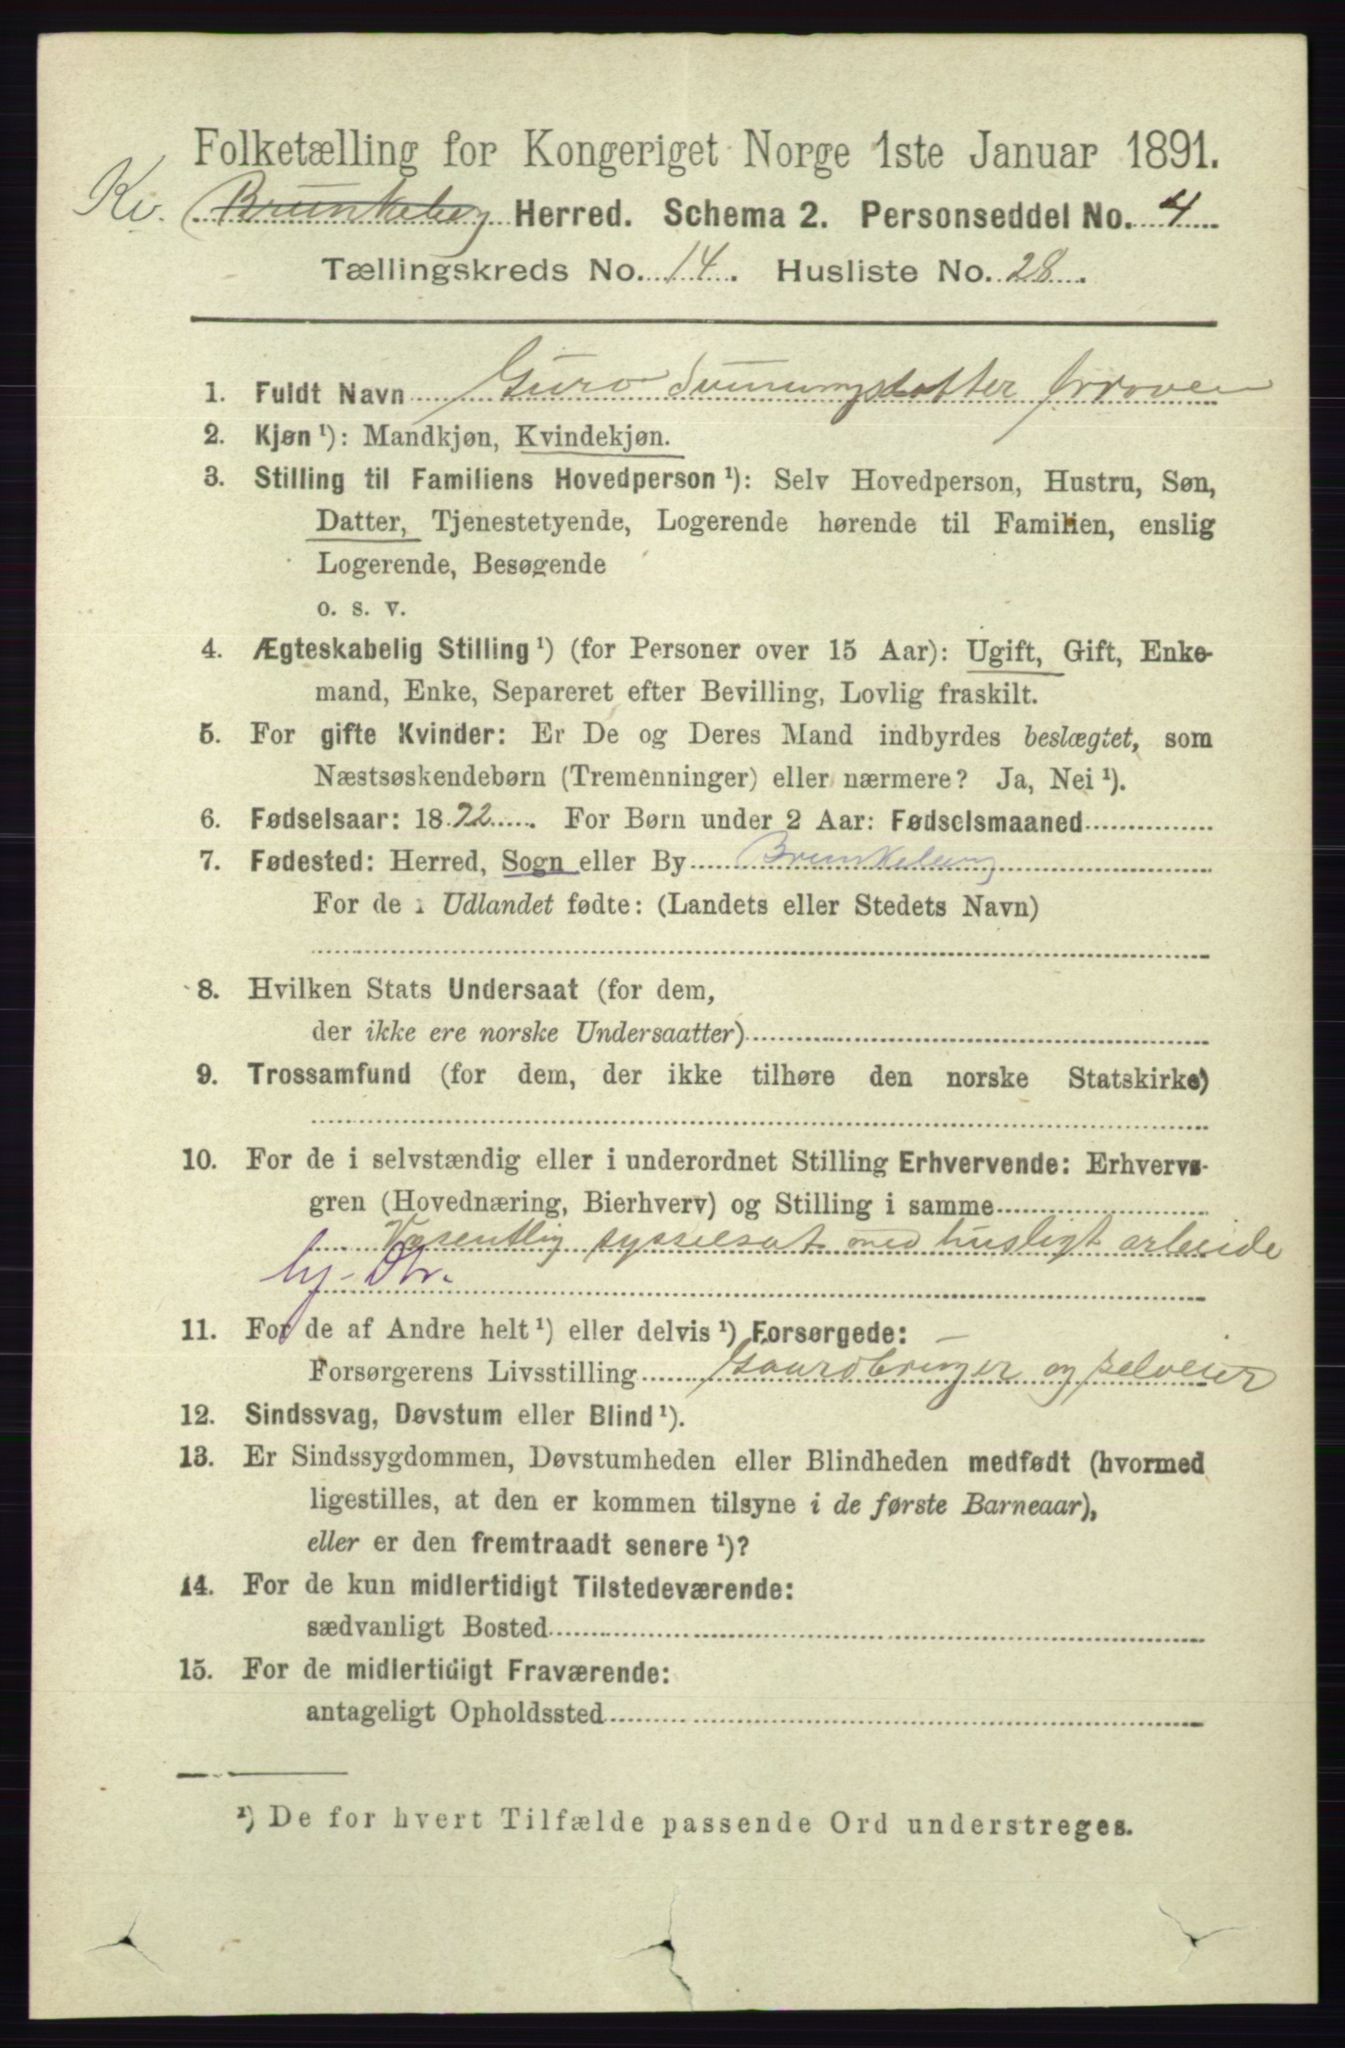 Folketælling for Kongeriget Norge 1ste Januar 1891.
Kv. Brunkeberg Herred. Schema 2. Personseddel No. 4
Tællingskreds No. 14. Husliste No. 28.
1. Fuldt Navn Guro
2. Kjøn ¹): Mandkjøn, Kvindekjøn.
3. Stilling til Familiens Hovedperson ¹): Selv Hovedperson, Hustru, Søn,
Datter, Tjenestetyende, Logerende hørende til Familien, enslig
Logerende, Besøgende
o. s. v.
4. Ægteskabelig Stilling ¹) (for Personer over 15 Aar): Ugift, Gift, Enke-
mand, Enke, Separeret efter Bevilling, Lovlig fraskilt.
5. For gifte Kvinder: Er De og Deres Mand indbyrdes beslægtet, som
Næstsøskendebørn (Tremenninger) eller nærmere? Ja, Nei ¹).
6. Fødselsaar: 1872. For Børn under 2 Aar: Fødselsmaaned
7. Fødested: Herred, Sogn eller By Brunkeberg
For de i Udlandet fødte: (Landets eller Stedets Navn)
8. Hvilken Stats Undersaat (for dem,
der ikke ere norske Undersaatter)
9. Trossamfund (for dem, der ikke tilhøre den norske Statskirke)
10. For de i selvstændig eller i underordnet Stilling Erhvervende: Erhvervs-
gren (Hovednæring, Bierhverv) og Stilling i samme
Væsentlig sysselsat med husligt arbeide
11. For de af Andre helt ¹) eller delvis ¹) Forsørgede:
Forsørgerens Livsstilling Gaardbruger og selveier
12. Sindssvag, Døvstum eller Blind ¹).
13. Er Sindssygdommen, Døvstumheden eller Blindheden medfødt (hvormed
ligestilles, at den er kommen tilsyne i de første Barneaar),
eller er den fremtraadt senere ¹)?
14. For de kun midlertidigt Tilstedeværende:
sædvanligt Bosted
15. For de midlertidigt Fraværende:
antageligt Opholdssted
¹) De for hvert Tilfælde passende Ord understreges.